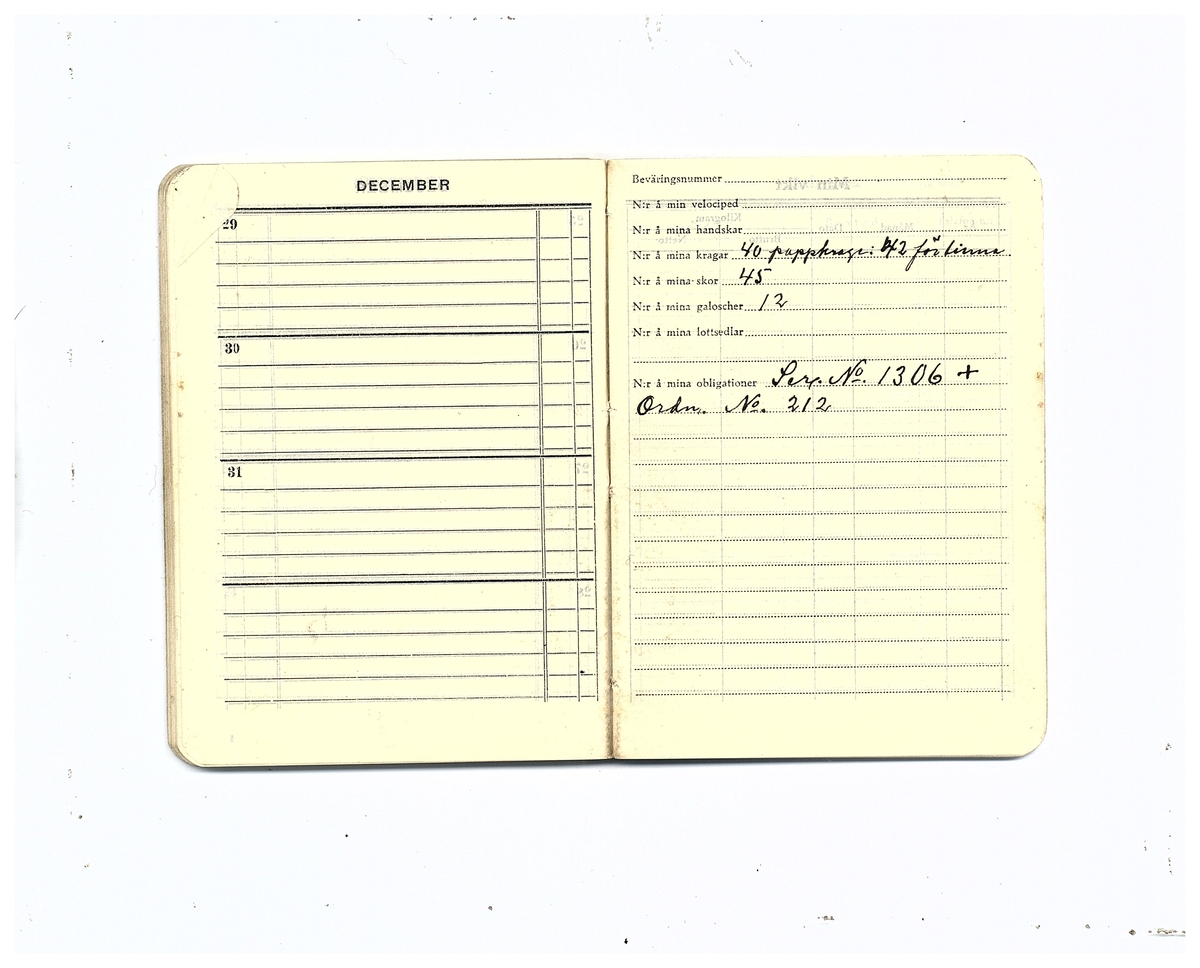 DECEMBER
29
30
31
Beväringsnummer
N:r å min velociped
N:r å mina handskar
N:r å mina kragar 40 pappkrage: 42 för linne
N:r å mina skor 45
N:r å mina galoscher 12
N:r å mina lottsedlar
N:r å mina obligationer Ser. No. 1306 +
Ordn. No. 212